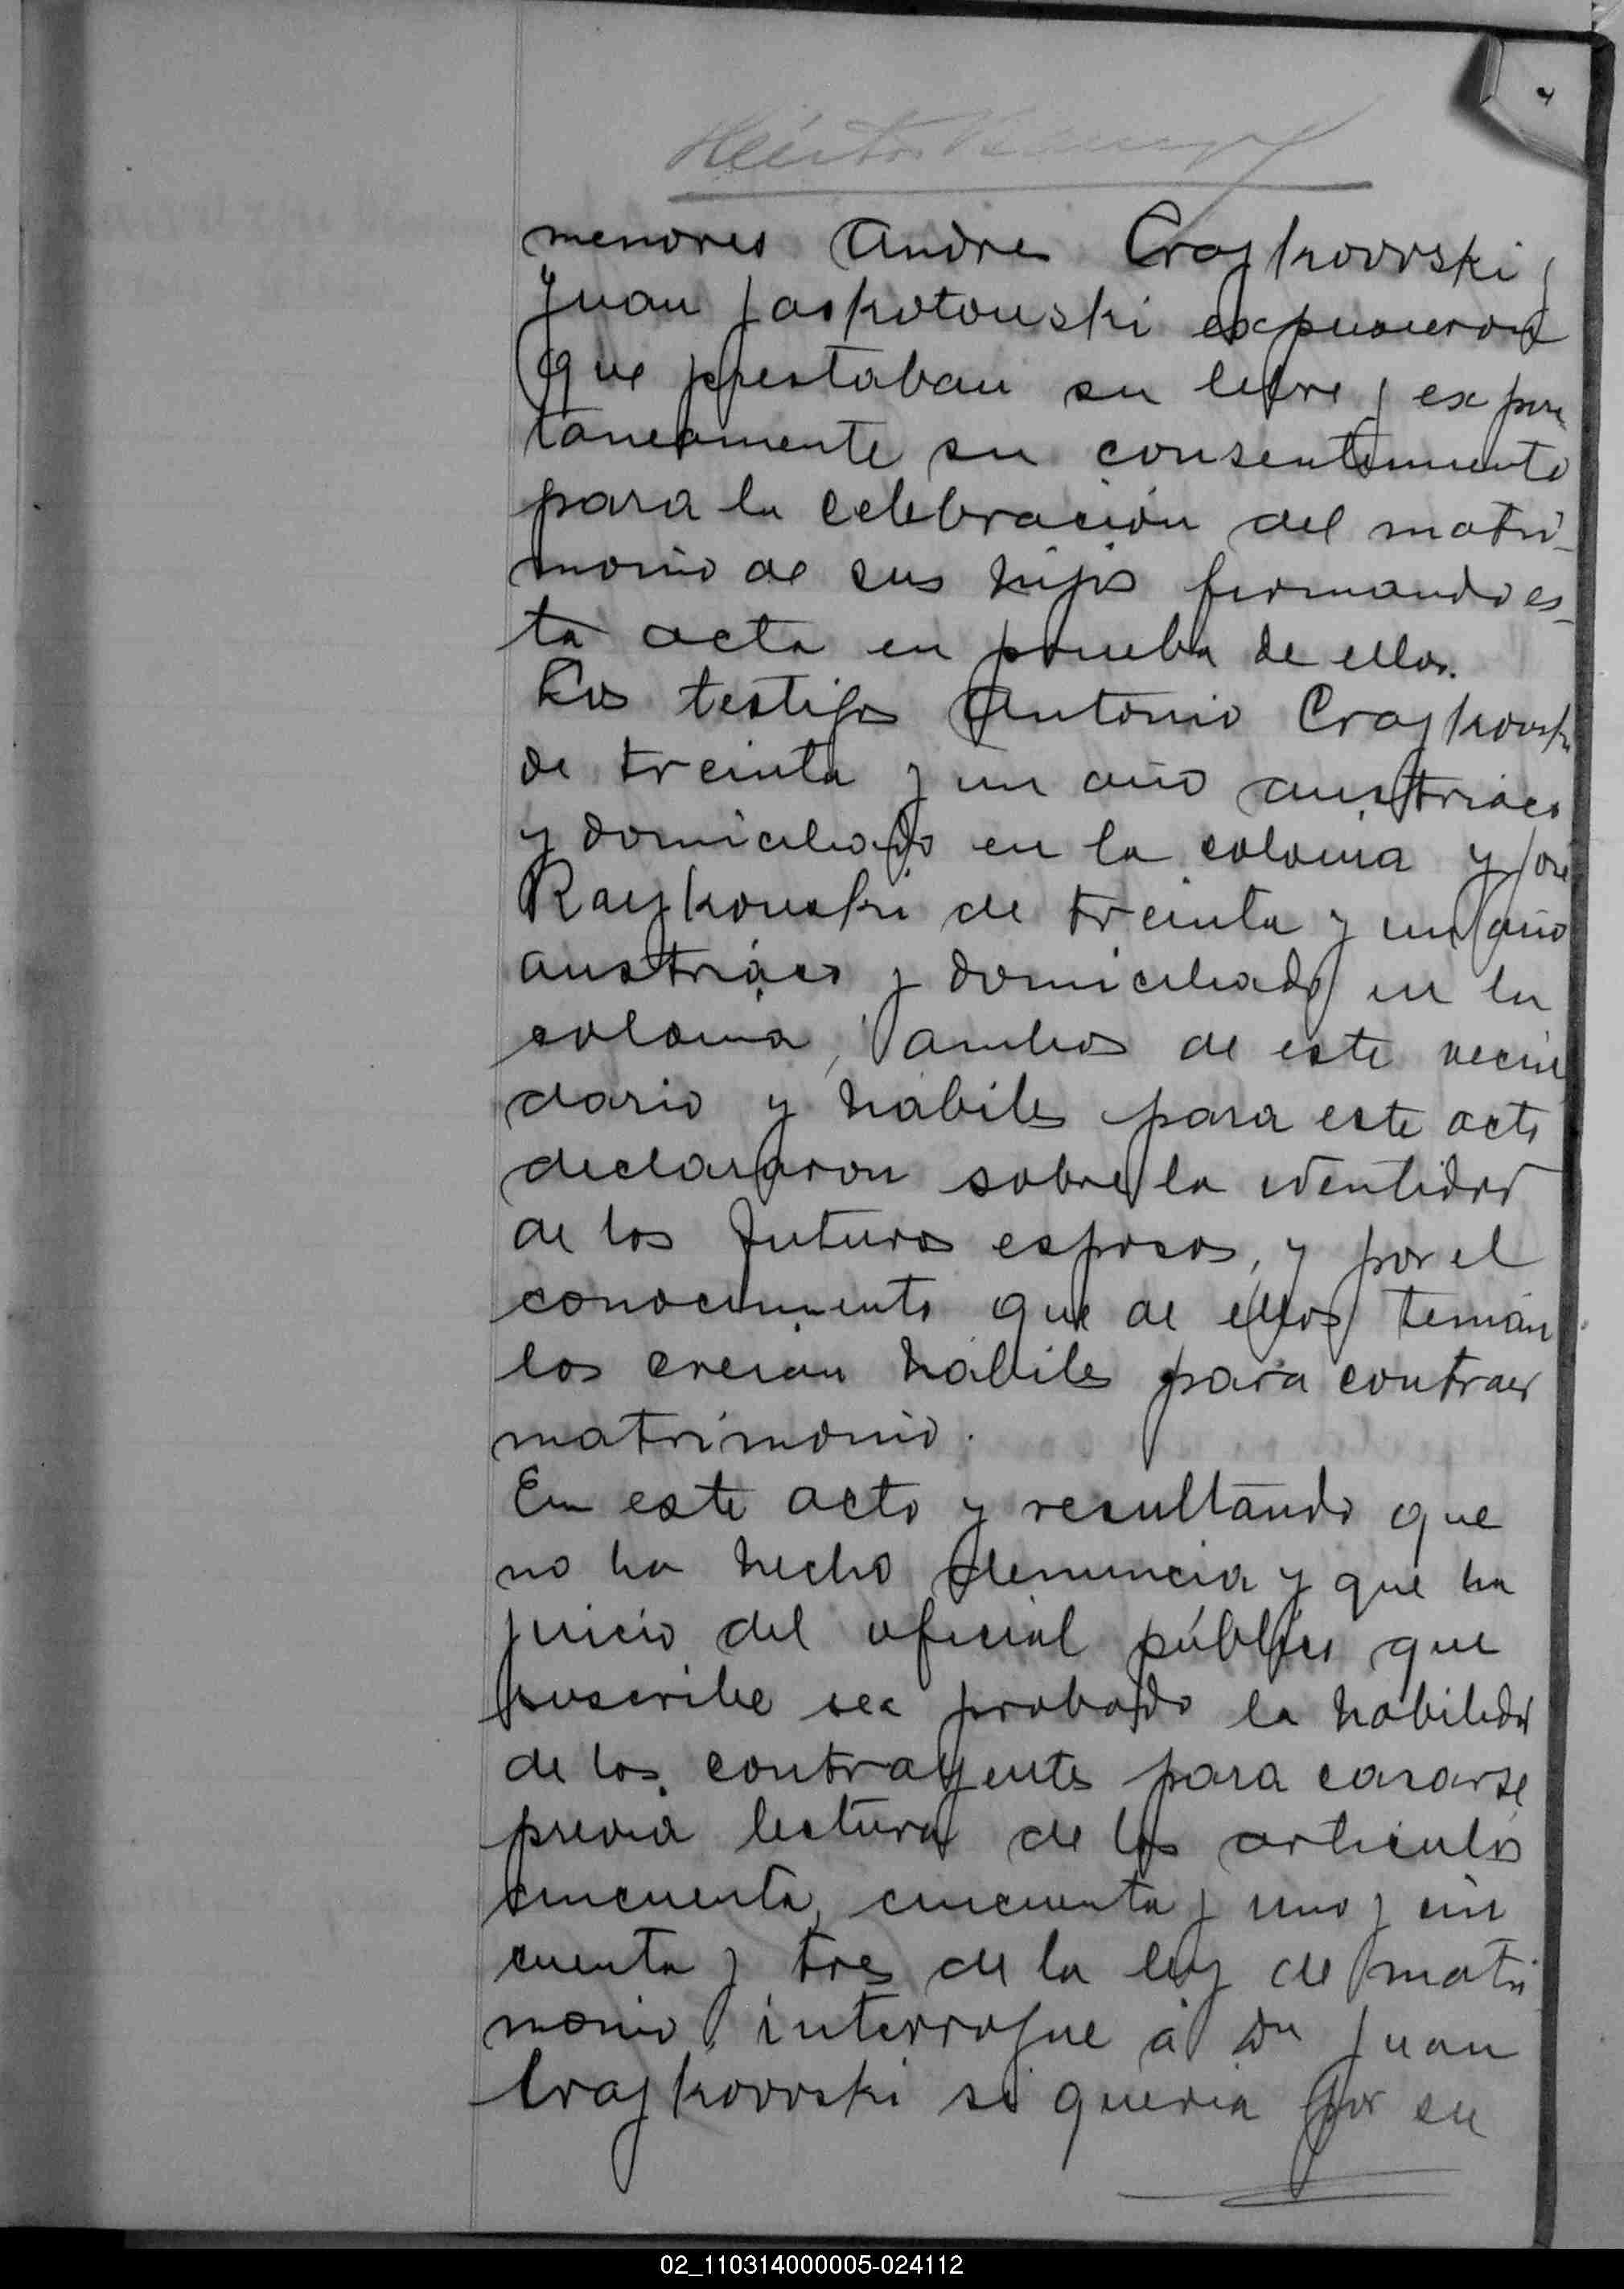 menores Andres Crajkovvski y
Juan Jaskotouski expusieron
que prestaban su libre y expon
taneamente su consentimiento
para la celebración del matri-
monio de sus hijos firmando es-
ta acta en prueba de ellos.
Los testigos Antonio Crajkovski
de treinta y un año austriaco
y domiciliado en la colonia y José
Raykouski de treinta y un año
austriaco y domiciliado en la
colonia, ambos de este vecin
dario y habiles para este acto
declararon sobre la identidad
de los futuros esposos, y por el
conocimiento que de ellos tenian
los creian habiles para contraer
matrimonio.
En este acto y resultando que
no ha hecho denuncia y que ha
juicio del oficial público que
suscribe sea probado la habilidad
de los contrayentes para casarse
previa lectura de los articulos
cincuenta, cincuenta y uno y cin
cuenta y tres de la ley de matri
monio, interrogue á Dn Juan
Crajkovvski si queria por su
02_110314000005-024112